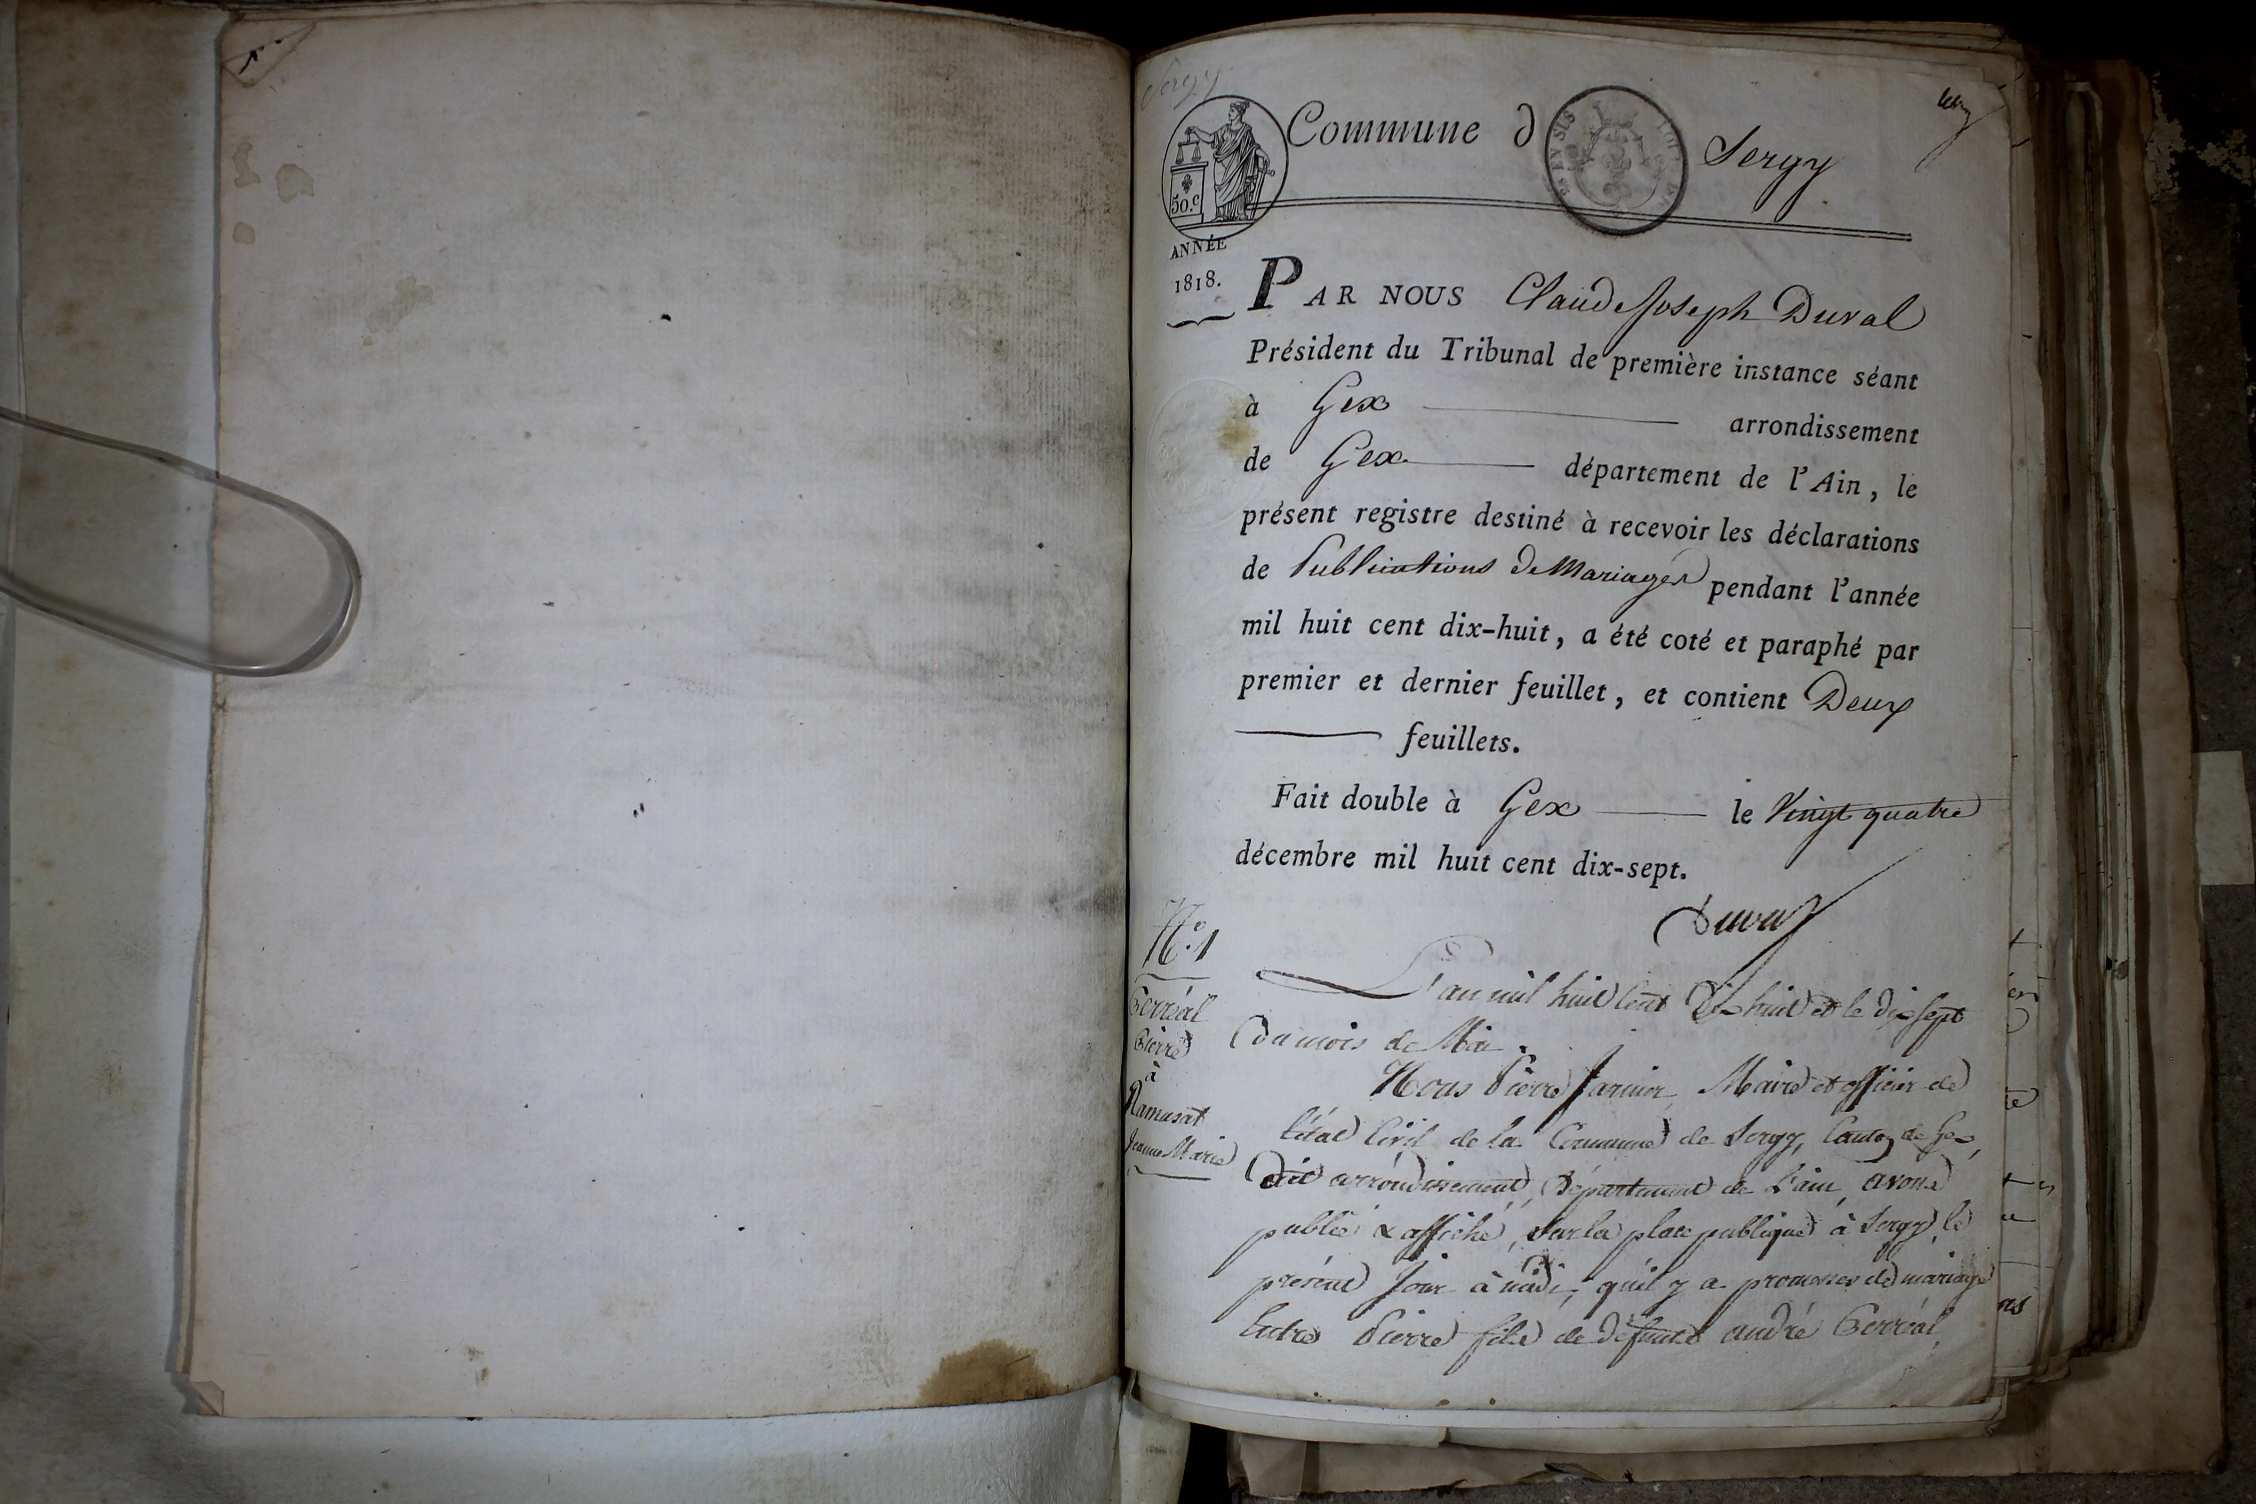 Sergy
Commune d Sergy
50.c
ANNÉE
1818.
PAR NOUS Claude Joseph Duval
Président du Tribunal de première instance séant
à Gex arrondissement
de Gex département de l'Ain, le
présent registre destiné à recevoir les déclarations
de Publications de Mariages pendant l'année
mil huit cent dix-huit, a été coté et paraphé par
premier et dernier feuillet, et contient Deux
feuillets.
Fait double à Gex le Vingt quatre
décembre mil huit cent dix-sept.
Duval
N.o 1
Perréal
Pierre
à
Ramusat
Jeanne Marie
L'an mil huit Cent Dix huit et le dix sept
du mois de Mai.
Nous Pierre Maire et officier de
l'état Civil de la Commune de Sergy, Canton de Gex,
dit arrondissement, Département de L'ain, avons
publié & affiché, sur la place publique à Sergy, le
présent Jour à midi, qu'il y a promesses de mariage
Entre Pierre fils de défunt andré Perréal,